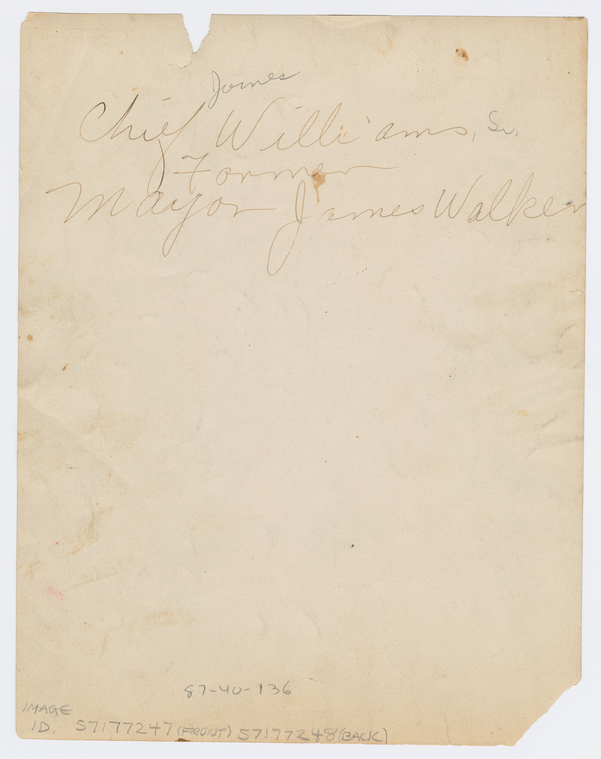 James
Chief Williams, Sr.
Former
Mayor James Walker
87-40-136
IMAGE
ID. 57177247 (FRONT) 57177248 (BACK)